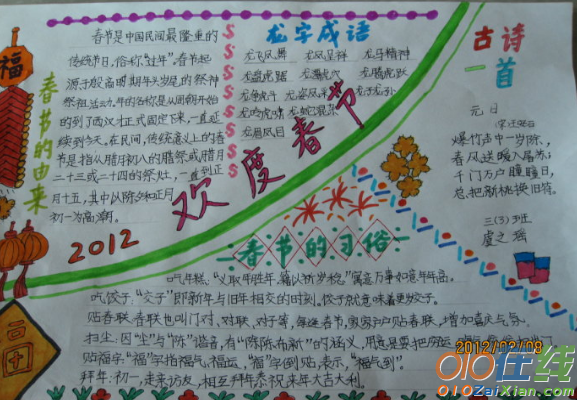 福
春节的由来
春节是中国民间最隆重的
传统节日,俗称"过年"春节起
源于殷商时期年头岁尾的祭神
祭祖活动,年的名称是从周朝开始
的到了西汉才正式固定下来,一直延
续到今天。在民间,传统意义上的春
节是指从腊月初八的腊祭或腊月
二十三或二十四的祭灶,一直到正
月十五,其中以除夕和正月
初一为高潮。
2012
龙字成语
龙飞凤舞 龙凤呈祥 龙马精神
龙盘虎踞 龙潭虎穴 龙腾虎跃
龙争虎斗 龙姿凤
龙吟虎啸 龙蛇混杂
龙眉凤目
欢度春节
古诗
一首
元日
宋·王安石
爆竹声中一岁除,
春风送暖入屠苏;
千门万户曈曈日,
总把新桃换旧符。
三(3)班
虞之瑶
春节的习俗
吃年糕:"义取年胜年,籍以祈岁稔"寓意万事如意年年高。
吃饺子:"交子"即新年与旧年相交的时刻。饺子就意味着更岁交子。
贴春联:春联也叫门对、对联、对子等,每逢春节,家家户户贴春联,增加喜庆气氛。
扫尘:因"尘"与"陈"谐音,有"除陈布新"的涵义,用意是要把
贴福字:"福"字指福气、福运,"福"字倒贴,表示"福气到"
拜年:初一,走亲访友,相互拜年恭祝来年大吉大利。
2012/02/08
010在线
010ZaiXian.com